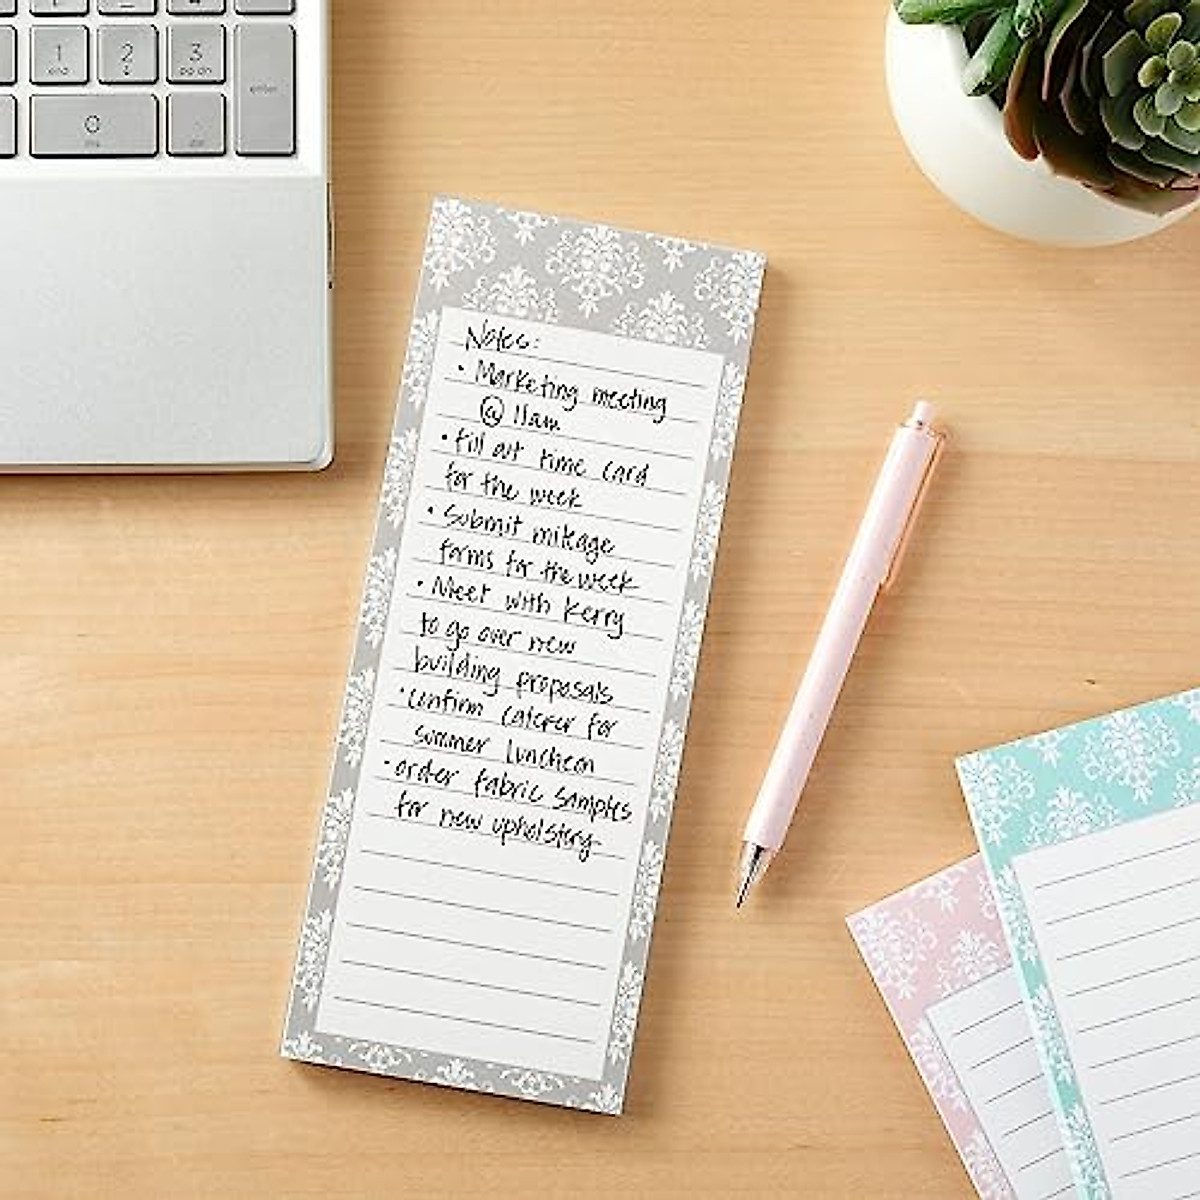 1
end
2
↓
3
pg dn
enter
0
ins
.
del
Notes:
• Marketing meeting
@ 11am
• Fill out time card
for the week
• Submit mileage
forms for the week
• Meet with Kerry
to go over new
building proposals
• Confirm caterer for
summer luncheon
• order fabric samples
for new upholstery